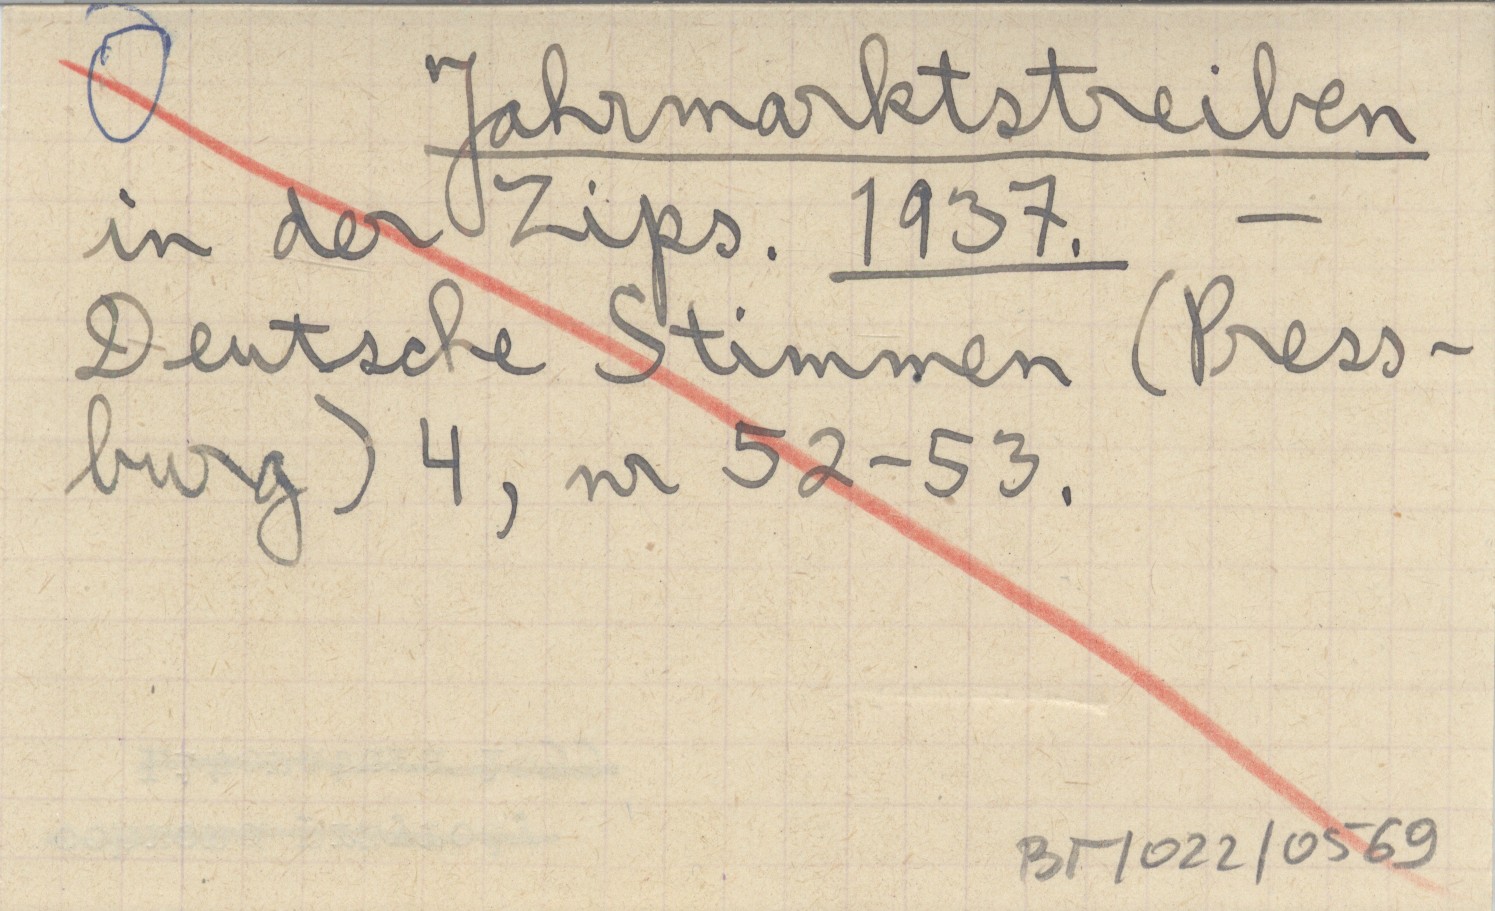 Jahrmarktstreiben
in der Zips. 1937. —
Deutsche Stimmen (Press-
burg) 4, nr 52-53.
ВГ/022/0569